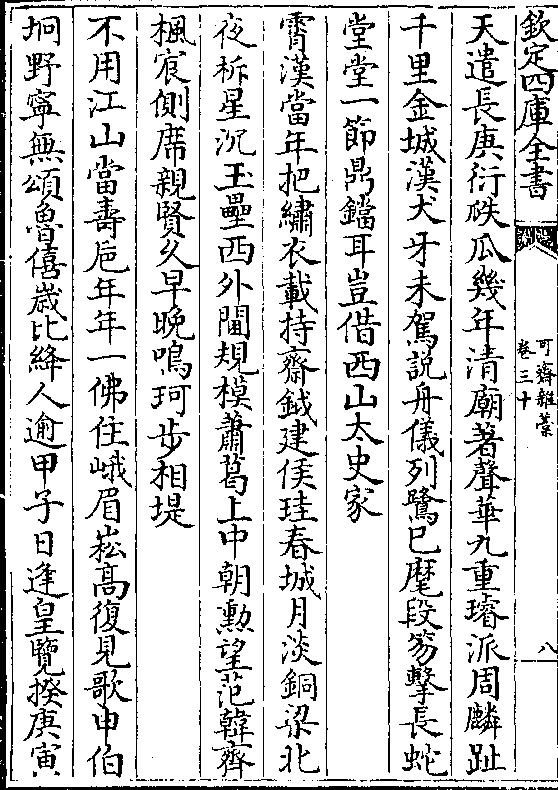 欽定四庫全書
可齋雜藁
卷三十
八
天遣長庚衍祑瓜幾年清廟著聲華九重璿派周麟趾
千里金城漢犬牙未駕說舟儀列鷺已麾段笏擊長蛇
堂堂一節鼎鐺耳豈借西山太史家
霄漢當年把繡衣載持齋鉞建侯珪春城月淡銅梁北
夜柝星沉玉壘西外閫規模蕭葛上中朝勲望范韓齊
楓宸側席親賢久早晚鳴珂步相堤
不用江山當壽巵年年一佛住峨眉崧髙復見歌申伯
坰野寧無頌魯僖嵗比絳人逾甲子日逢皇覽揆庚寅